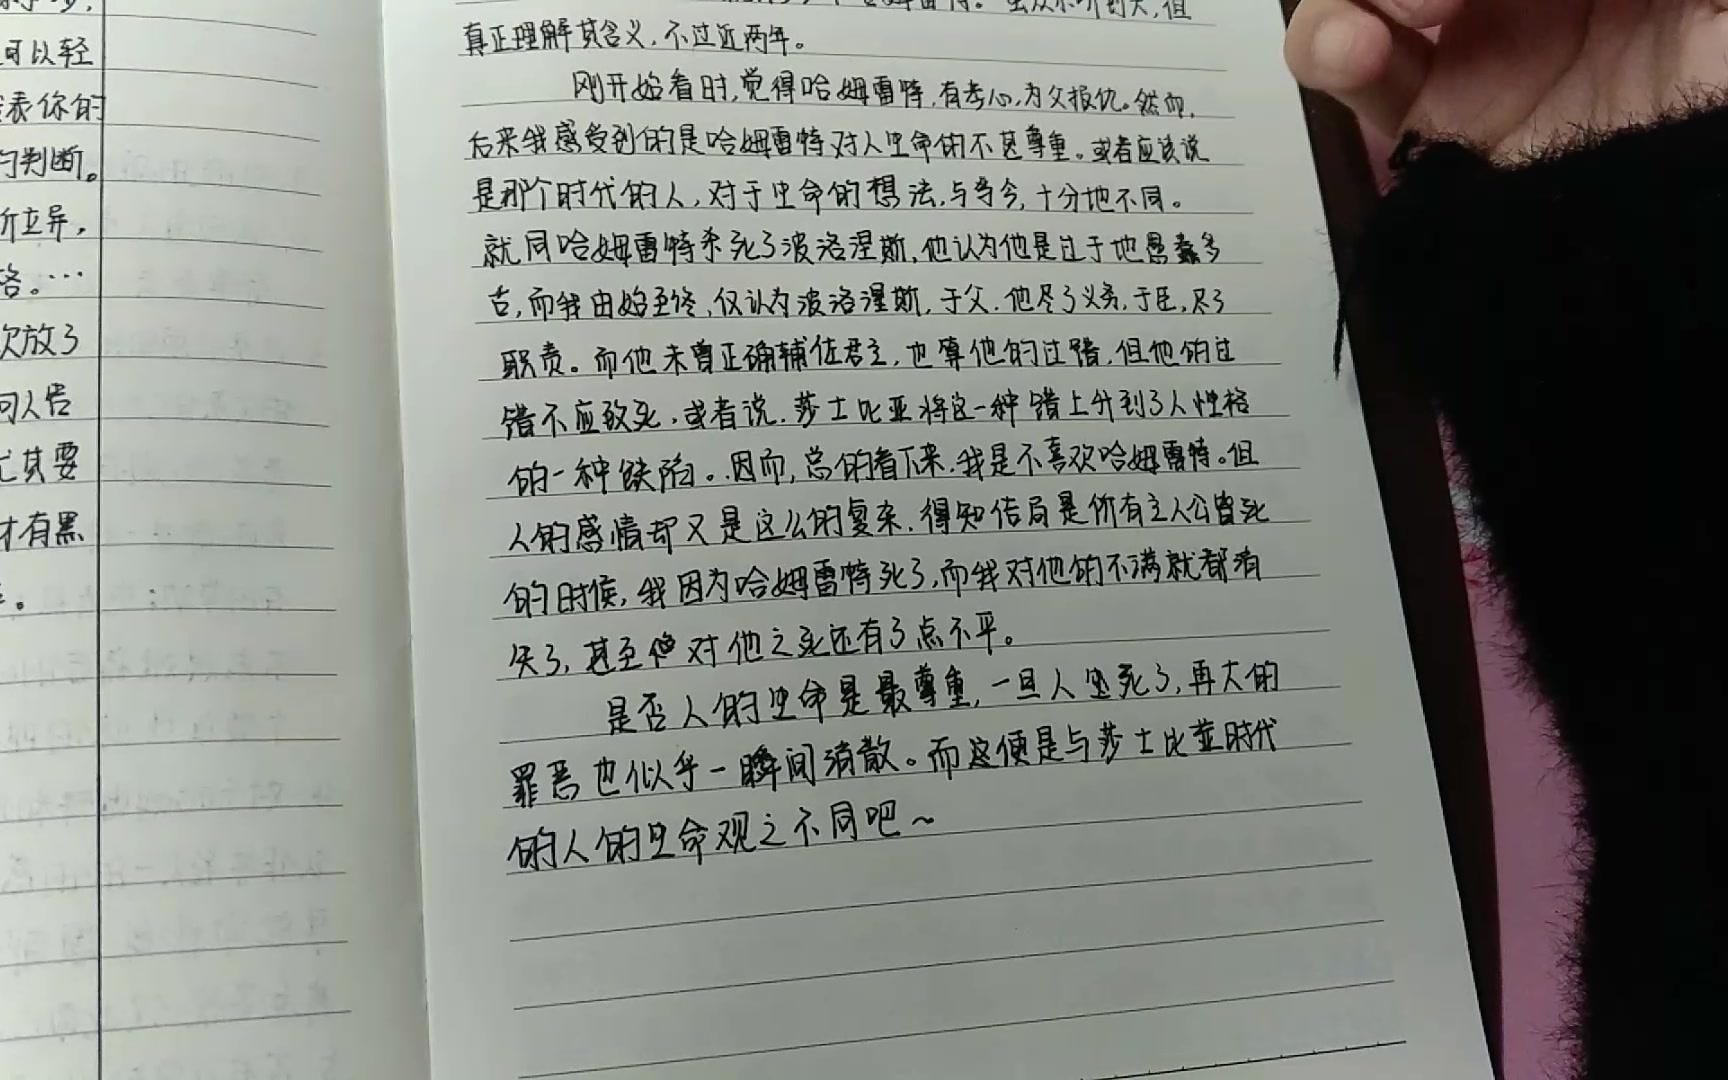 可以轻
表你的
判断。
立异，
格。…
次放了
问人告
尤其要
才有黑
虽从小听到大，但
真正理解其含义，不过近两年。
刚开始看时，觉得哈姆雷特，有孝心，为父报仇。然而，
后来我感受到的是哈姆雷特对人生命的不甚尊重。或者应该说
是那个时代的人，对于生命的想法，与当今，十分地不同。
就同哈姆雷特杀死了波洛涅斯，他认为他是过于地愚蠢多
舌，而我由始至终，仅认为波洛涅斯，于父，他尽了义务，于臣，尽了
职责。而他未曾正确辅佐君主，也算他的过错，但他的过
错不应致死，或者说，莎士比亚将这一种错上升到了人性格
的一种缺陷。因而，总的看下来，我是不喜欢哈姆雷特。但
人的感情却又是这么的复杂，得知结局是所有主人公皆死
的时候，我因为哈姆雷特死了，而我对他的不满就都消
失了，甚至 对他之死还有了点不平。
是否人的生命是最尊重，一旦人 死了，再大的
罪恶也似乎一瞬间消散。而这便是与莎士比亚时代
的人的生命观之不同吧～